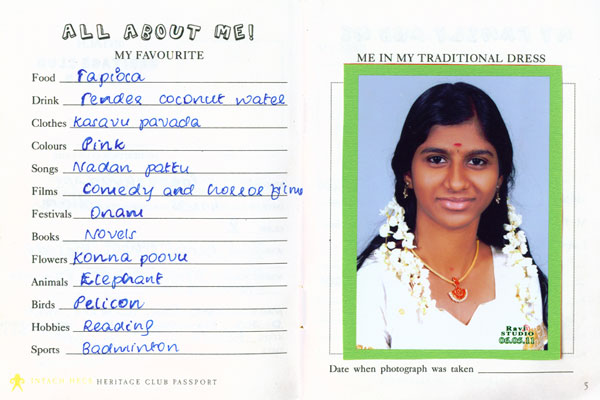 ALL ABOUT ME!
MY FAVOURITE
Food Tapioca
Drink Tender coconut water
Clothes Kasavu pavada
Colours Pink
Songs Nadan pattu
Films Comedy and horror films
Festivals Onam
Books Novels
Flowers Konna poovu
Animals Elephant
Birds Pelicon
Hobbies Reading
Sports Badminton
HERITAGE CLUB PASSPORT
ME IN MY TRADITIONAL DRESS
Ravi
STUDIO
06.06.11
Date when photograph was taken
5